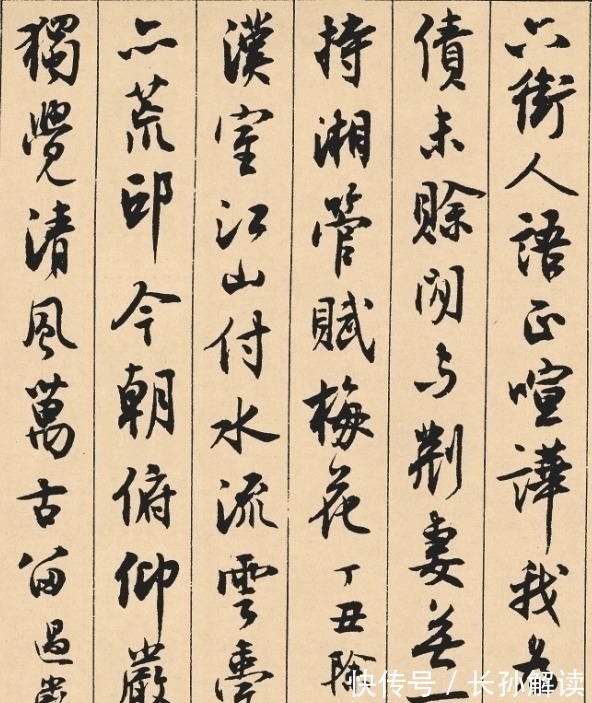 六街人語正喧譁我
債未賒閒与荊妻
持湘管賦梅花丁丑除
漢室江山付水流雲臺
亦荒邱今朝俯仰嚴
獨覺清風萬古留過
快传号 / 长孙解读